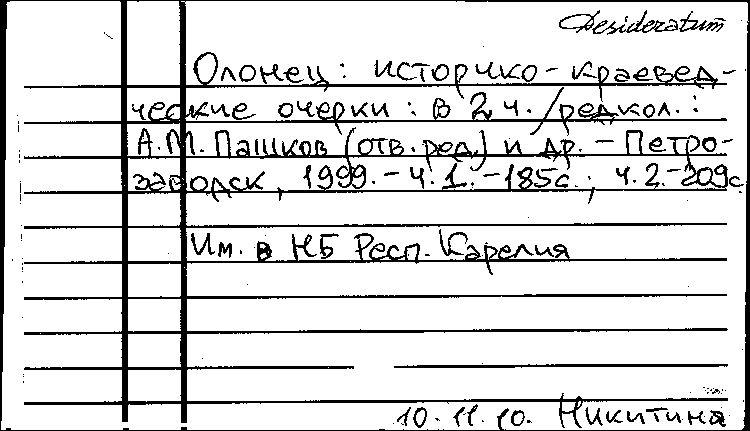 Desideratum
Олонец: историко-краевед-
ческие очерки: в 2 ч. /редкол.:
А.М. Пашков (отв. ред.) и др. – Петро-
заводск, 1999. – Ч. 1. – 185с.; ч. 2. – 209с
Им. в НБ Респ. Карелия
10.11.10. Никитина